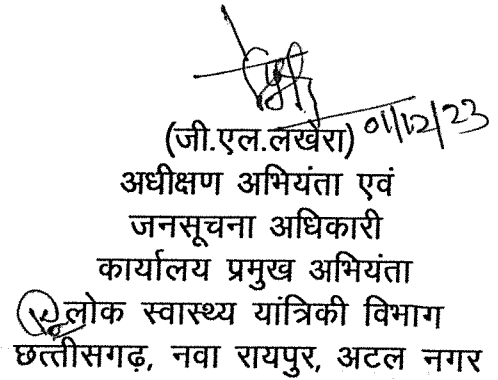 01/12/23
(जी.एल.लखेरा)
अधीक्षण अभियंता एवं
जनसूचना अधिकारी
कार्यालय प्रमुख अभियंता
लोक स्वास्थ्य यांत्रिकी विभाग
छत्तीसगढ़, नवा रायपुर, अटल नगर